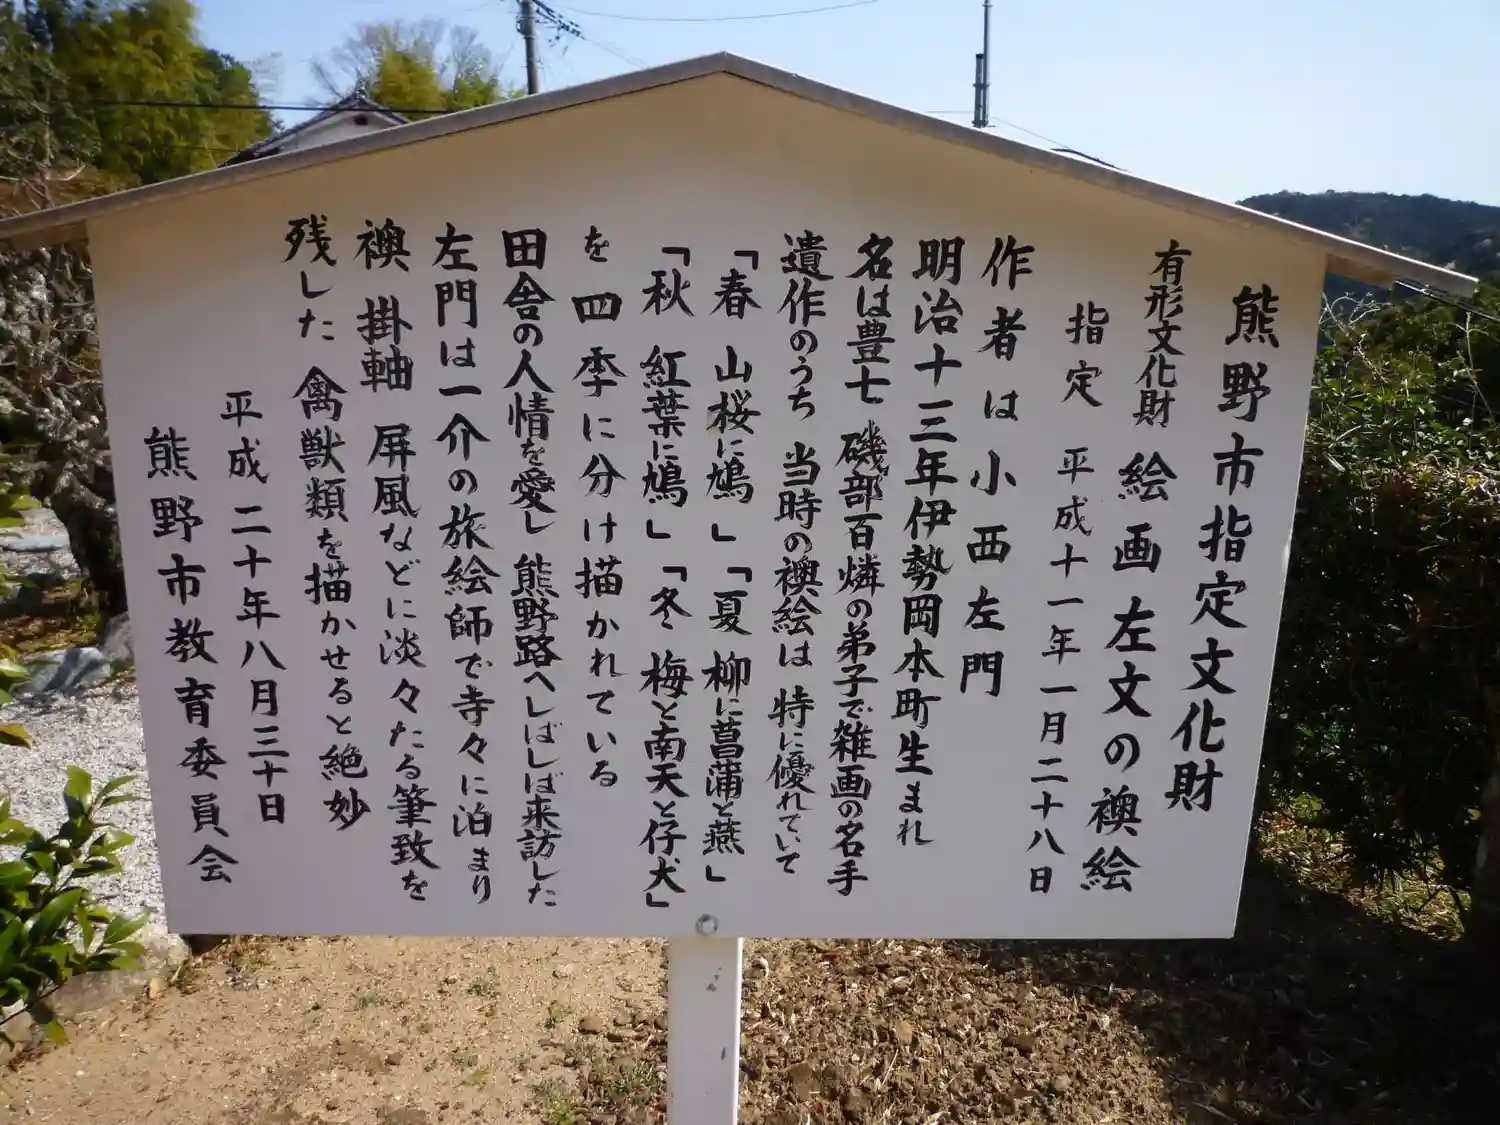 熊野市指定文化財
有形文化財 絵画 左文の襖絵
指定 平成十一年一月二十八日
作者は小西左門
明治十三年伊勢岡本町生まれ
名は豊七 磯部百燐の弟子で雑画の名手
遺作のうち 当時の襖絵は 特に優れていて
「春 山桜に鳩」「夏 柳に菖蒲と燕」
「秋 紅葉に鳩」「冬 梅と南天と仔犬」
を四季に分け描かれている
田舎の人情を愛し 熊野路へしばしば来訪した
左門は一介の旅絵師で寺々に泊まり
襖 掛軸 屏風などに淡々たる筆致を
残した 禽獣類を描かせると絶妙
平成二十年八月三十日
熊野市教育委員会